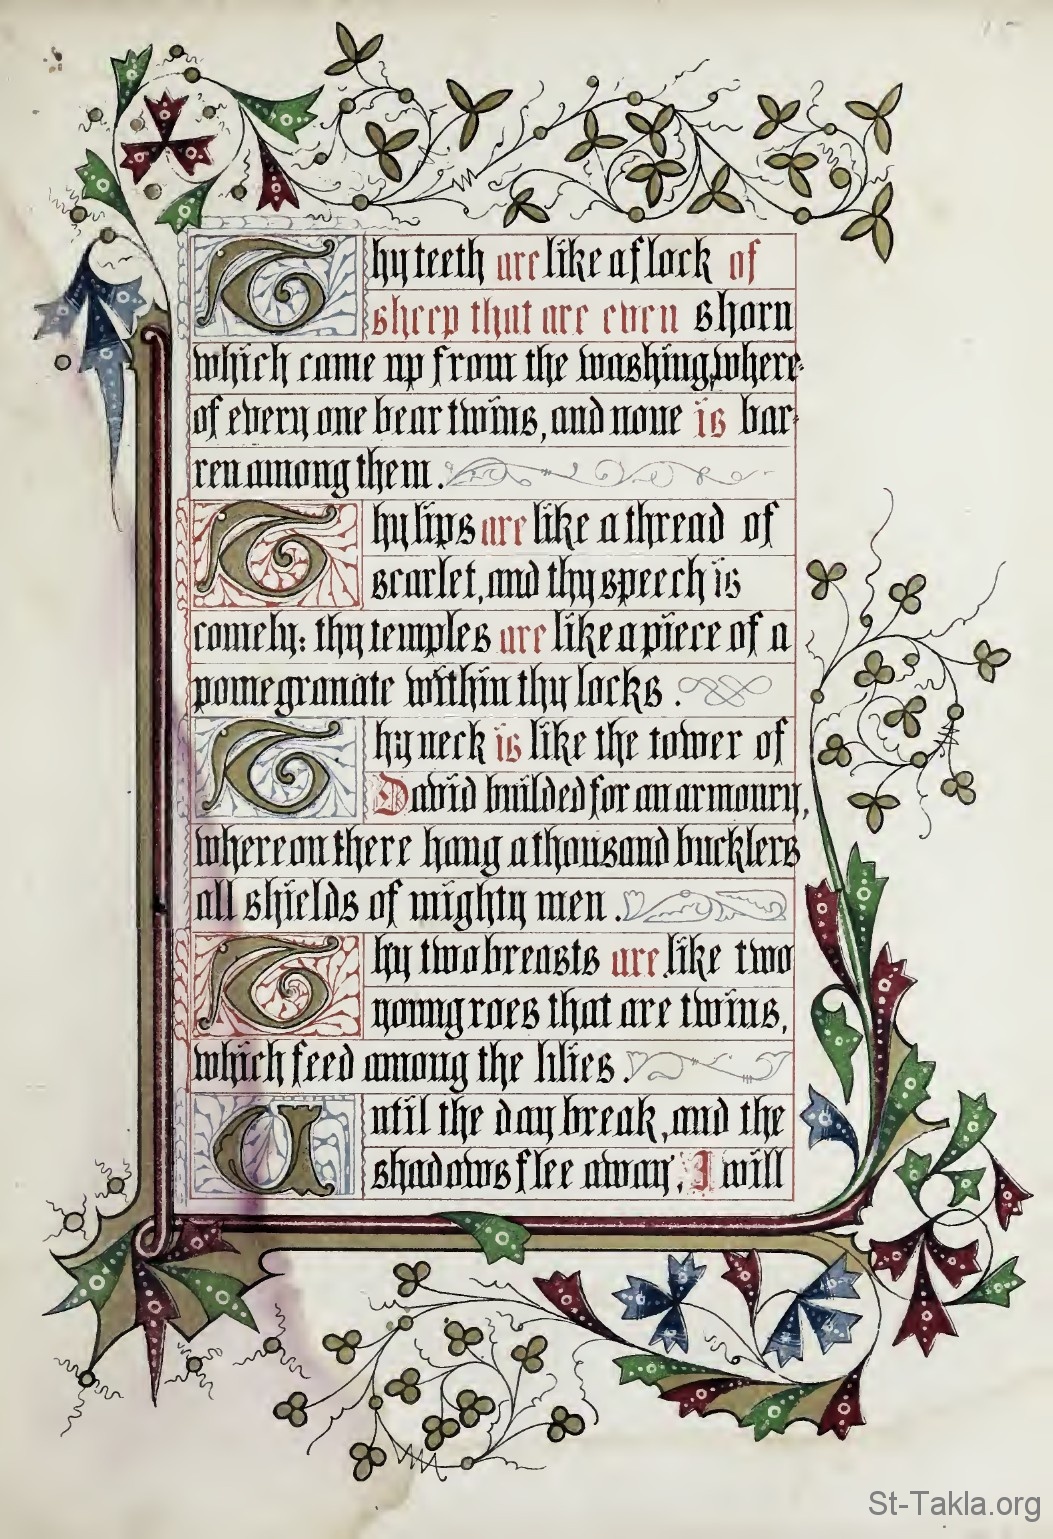 Thy teeth are like a flock of
sheep that are even shorn
which came up from the washing, where-
of every one bear twins, and none is bar-
ren among them.
Thy lips are like a thread of
scarlet, and thy speech is
comely: thy temples are like a piece of a
pomegranate within thy locks.
Thy neck is like the tower of
David builded for an armoury,
whereon there hang a thousand bucklers
all shields of mighty men.
Thy two breasts are like two
young roes that are twins,
which feed among the lilies.
Until the day break, and the
shadows flee away, I will
St-Takla.org